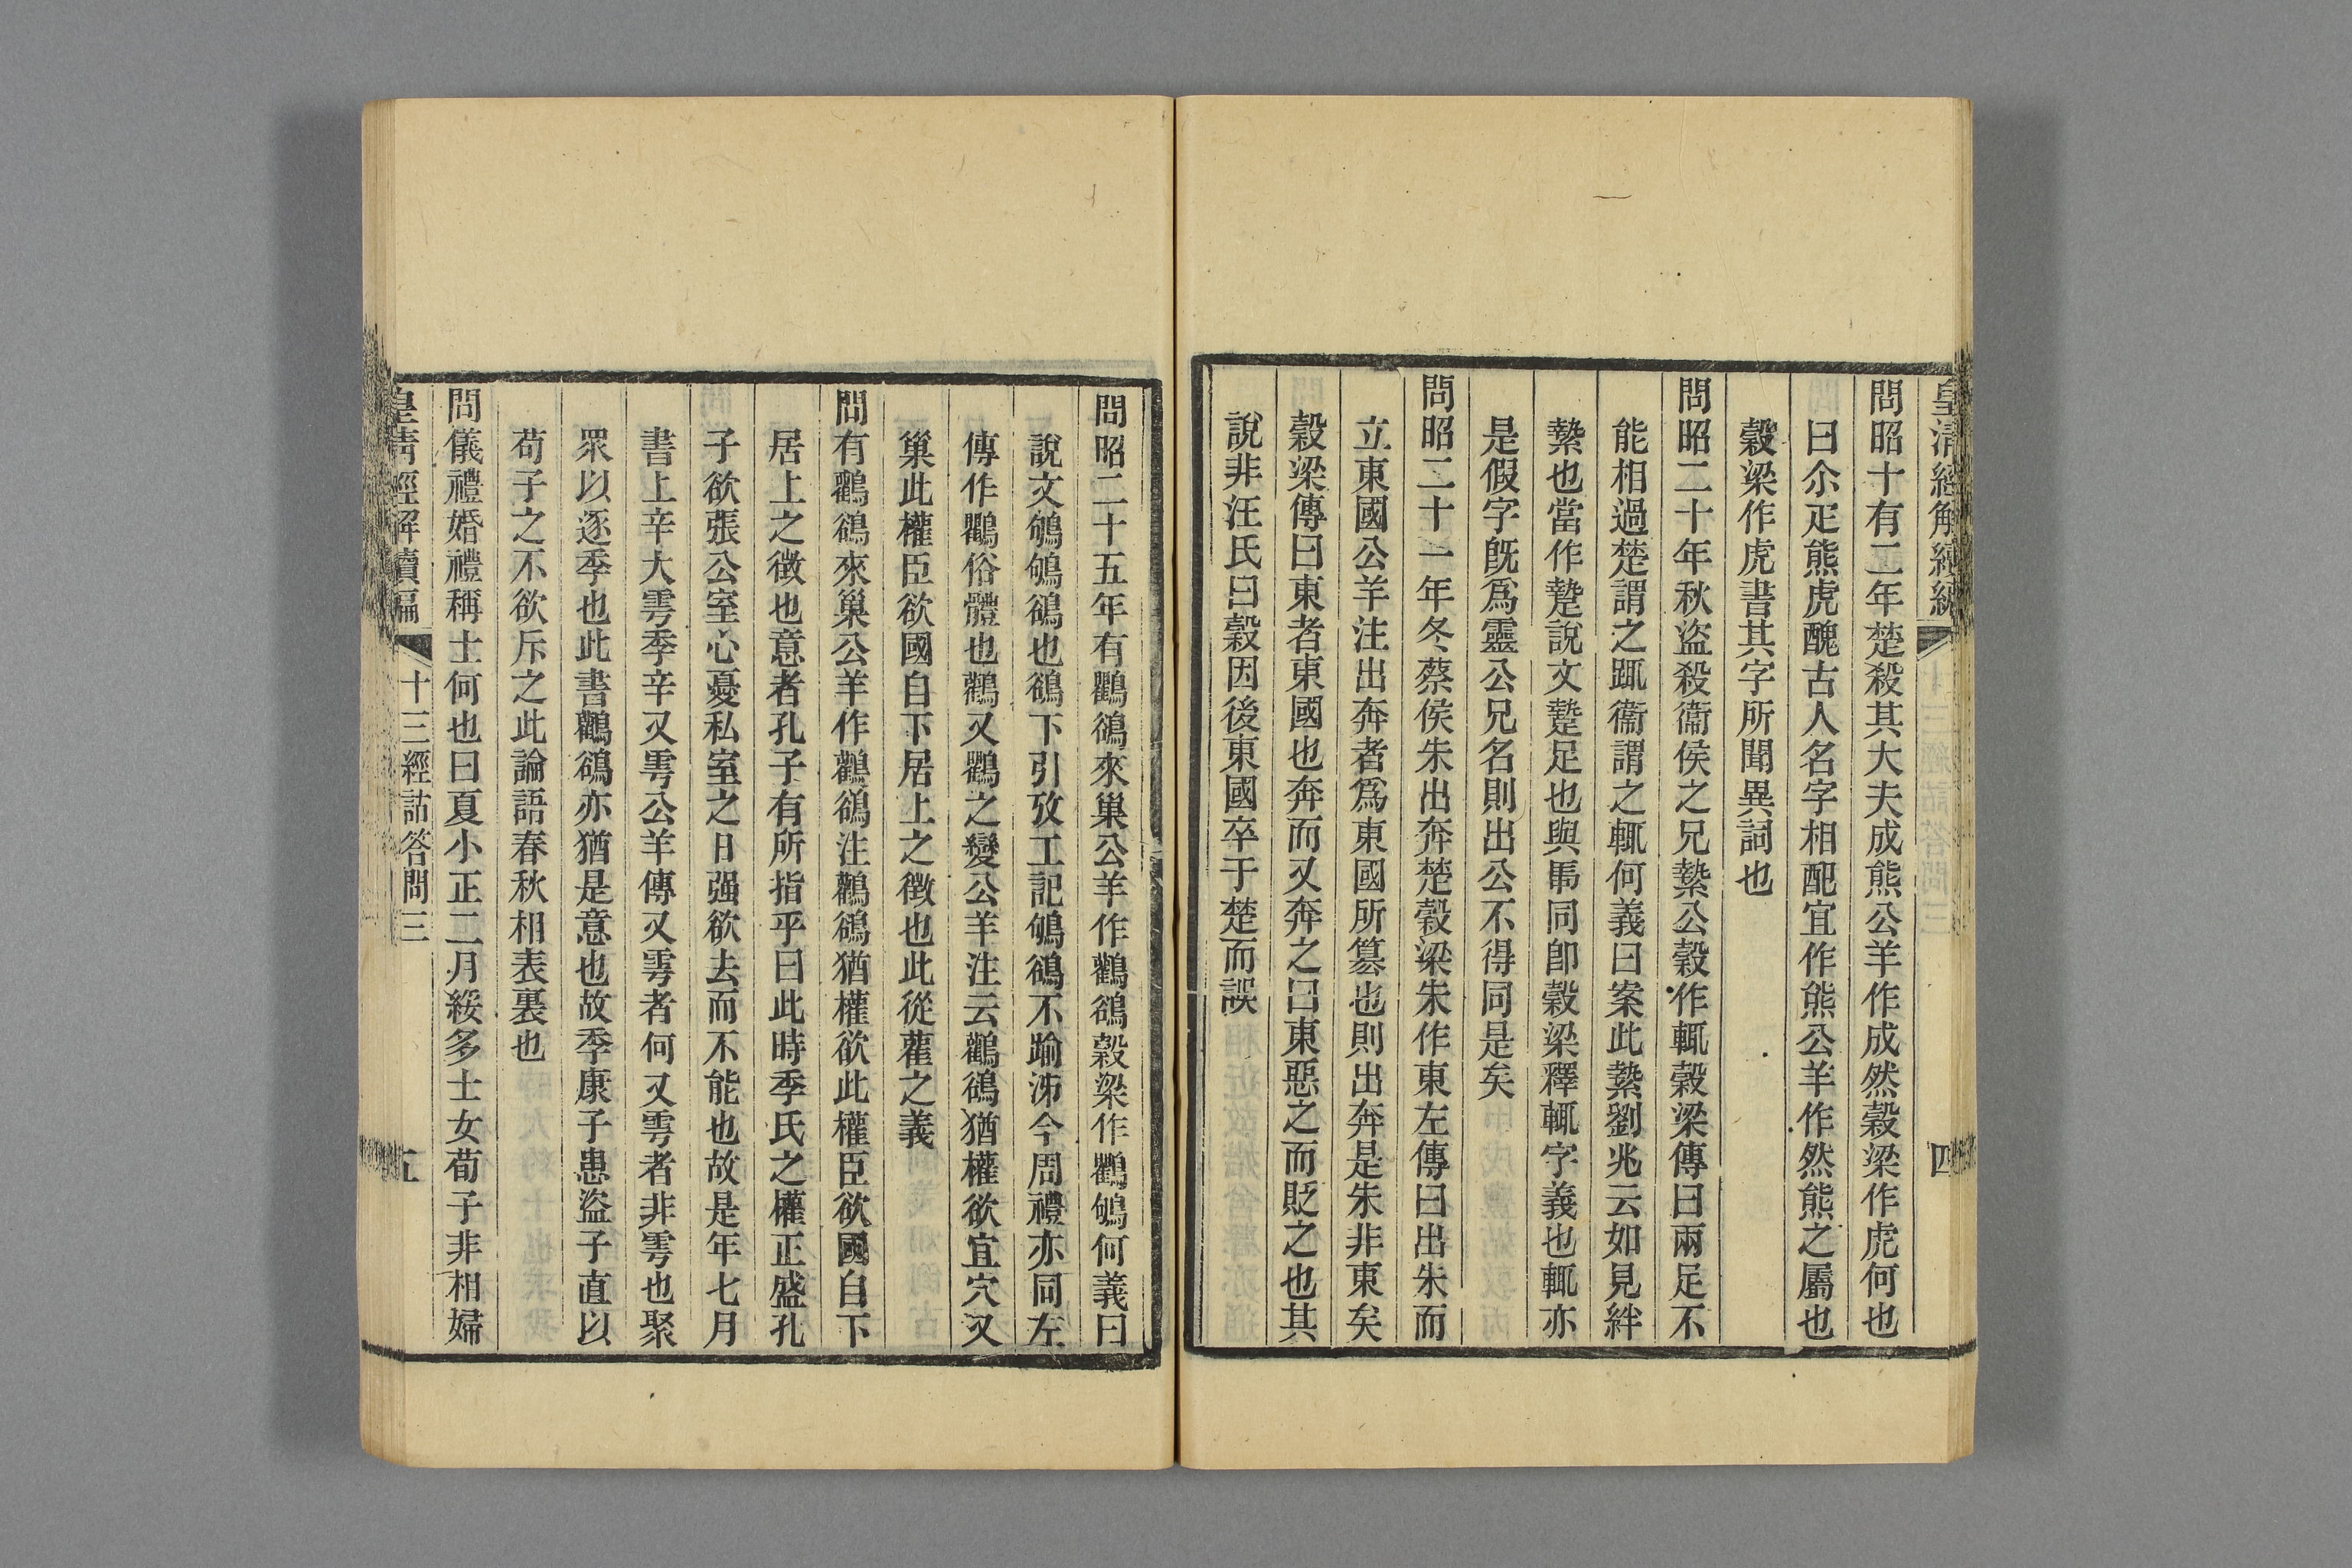 皇清經解續編
四
問昭十有二年楚殺其大夫成熊公羊作成然穀梁作虎何也
曰尒疋熊虎醜古人名字相配宜作熊公羊作然熊之屬也
穀梁作虎書其字所聞異詞也
問昭二十年秋盜殺衞侯之兄縶公穀作輒穀梁傳曰兩足不
能相過楚謂之踂衞謂之輒何義曰案此縶劉兆云如見絆
縶也當作蟄說文蟄足也與馬同卽穀梁釋輒字義也輒亦
是假字旣爲靈公兄名則出公不得同是矣
問昭二十一年冬蔡侯朱出奔楚穀梁朱作東左傳曰出朱而
立東國公羊注出奔者爲東國所篡也則出奔是朱非東矣
穀梁傳曰東者東國也奔而又奔之曰東惡之而貶之也其
說非汪氏曰穀因後東國卒于楚而誤
問昭二十五年有鸜鵒來巢公羊作鸛鵒穀梁作鸜鴝何義曰
說文鴝鴝鵒也鵒下引攷工記鴝鵒不踰泲今周禮亦同左
傳作鸜俗體也鸛又鸜之變公羊注云鸛鵒猶權欲宜穴又
巢此權臣欲國自下居上之徵也此從雚之義
問有鸛鵒來巢公羊作鸛鵒注鸛鵒猶權欲此權臣欲國自下
居上之徵也意者孔子有所指乎曰此時季氏之權正盛孔
子欲張公室心憂私室之日强欲去而不能也故是年七月
書上辛大雩季辛又雩公羊傳又雩者何又雩者非雩也聚
眾以逐季也此書鸜鵒亦猶是意也故季康子患盜子直以
苟子之不欲斥之此論語春秋相表裏也
問儀禮婚禮稱士何也曰夏小正二月綏多士女荀子非相婦
皇淸經解續編
十三經詁答問三
五